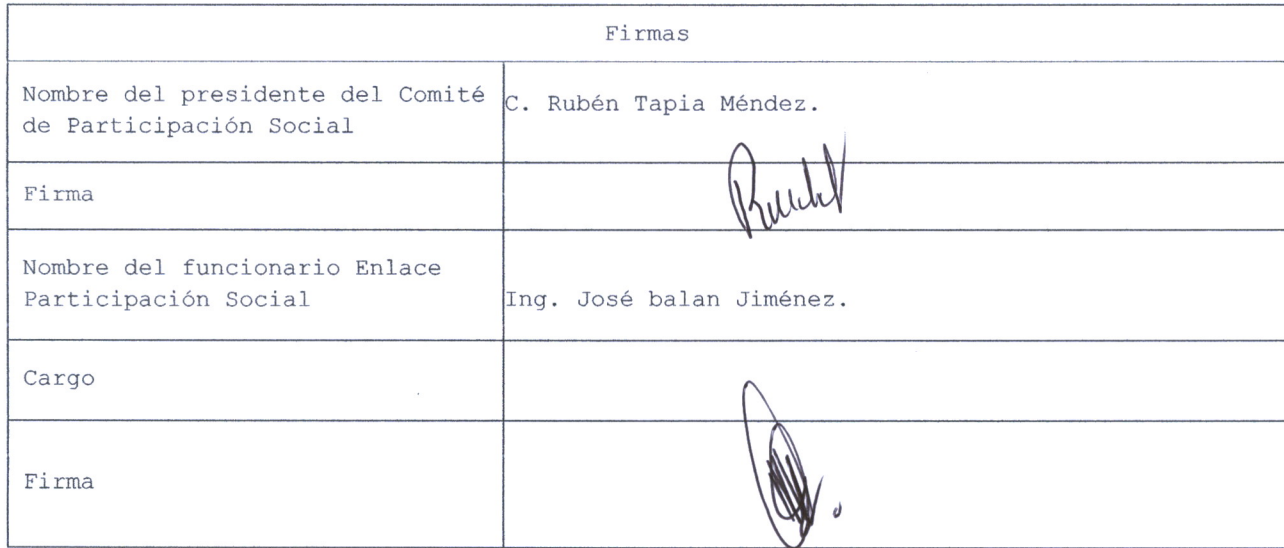 Firmas
Nombre del presidente del Comité
de Participación Social
C. Rubén Tapia Méndez.
Firma
Nombre del funcionario Enlace
Participación Social
Ing. José balan Jiménez.
Cargo
Firma